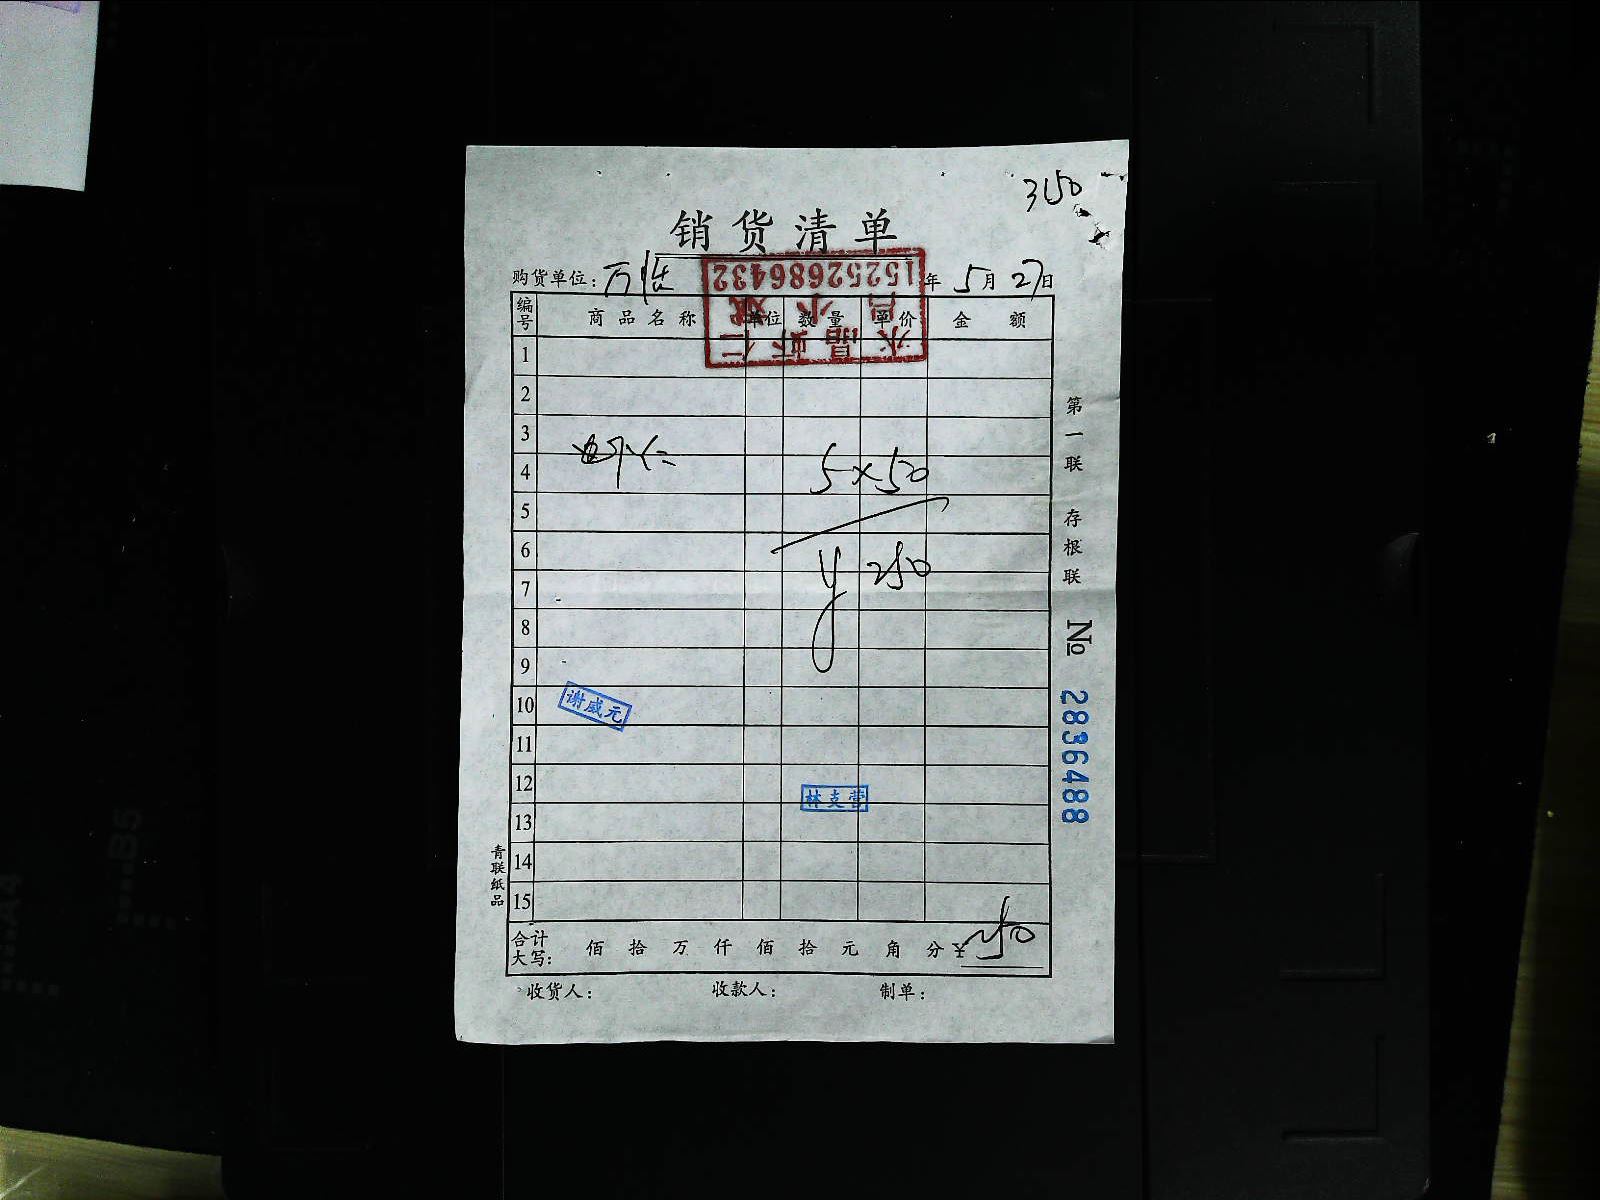 3150
销货清单
购货单位：万 年 5月27日
15252686432
水晶虾仁
编号 商品名称 单位 数量 单价 金额
1
2
3
虾仁 5×50
4
5
6
¥250
7
8
9
10
谢威元
11
12
林克营
13
14
15
合计大写： 佰 拾 万 仟 佰 拾 元 角 分 ¥250
收货人： 收款人： 制单：
第一联 存根联
№ 2836488
青联纸品
B5
A4